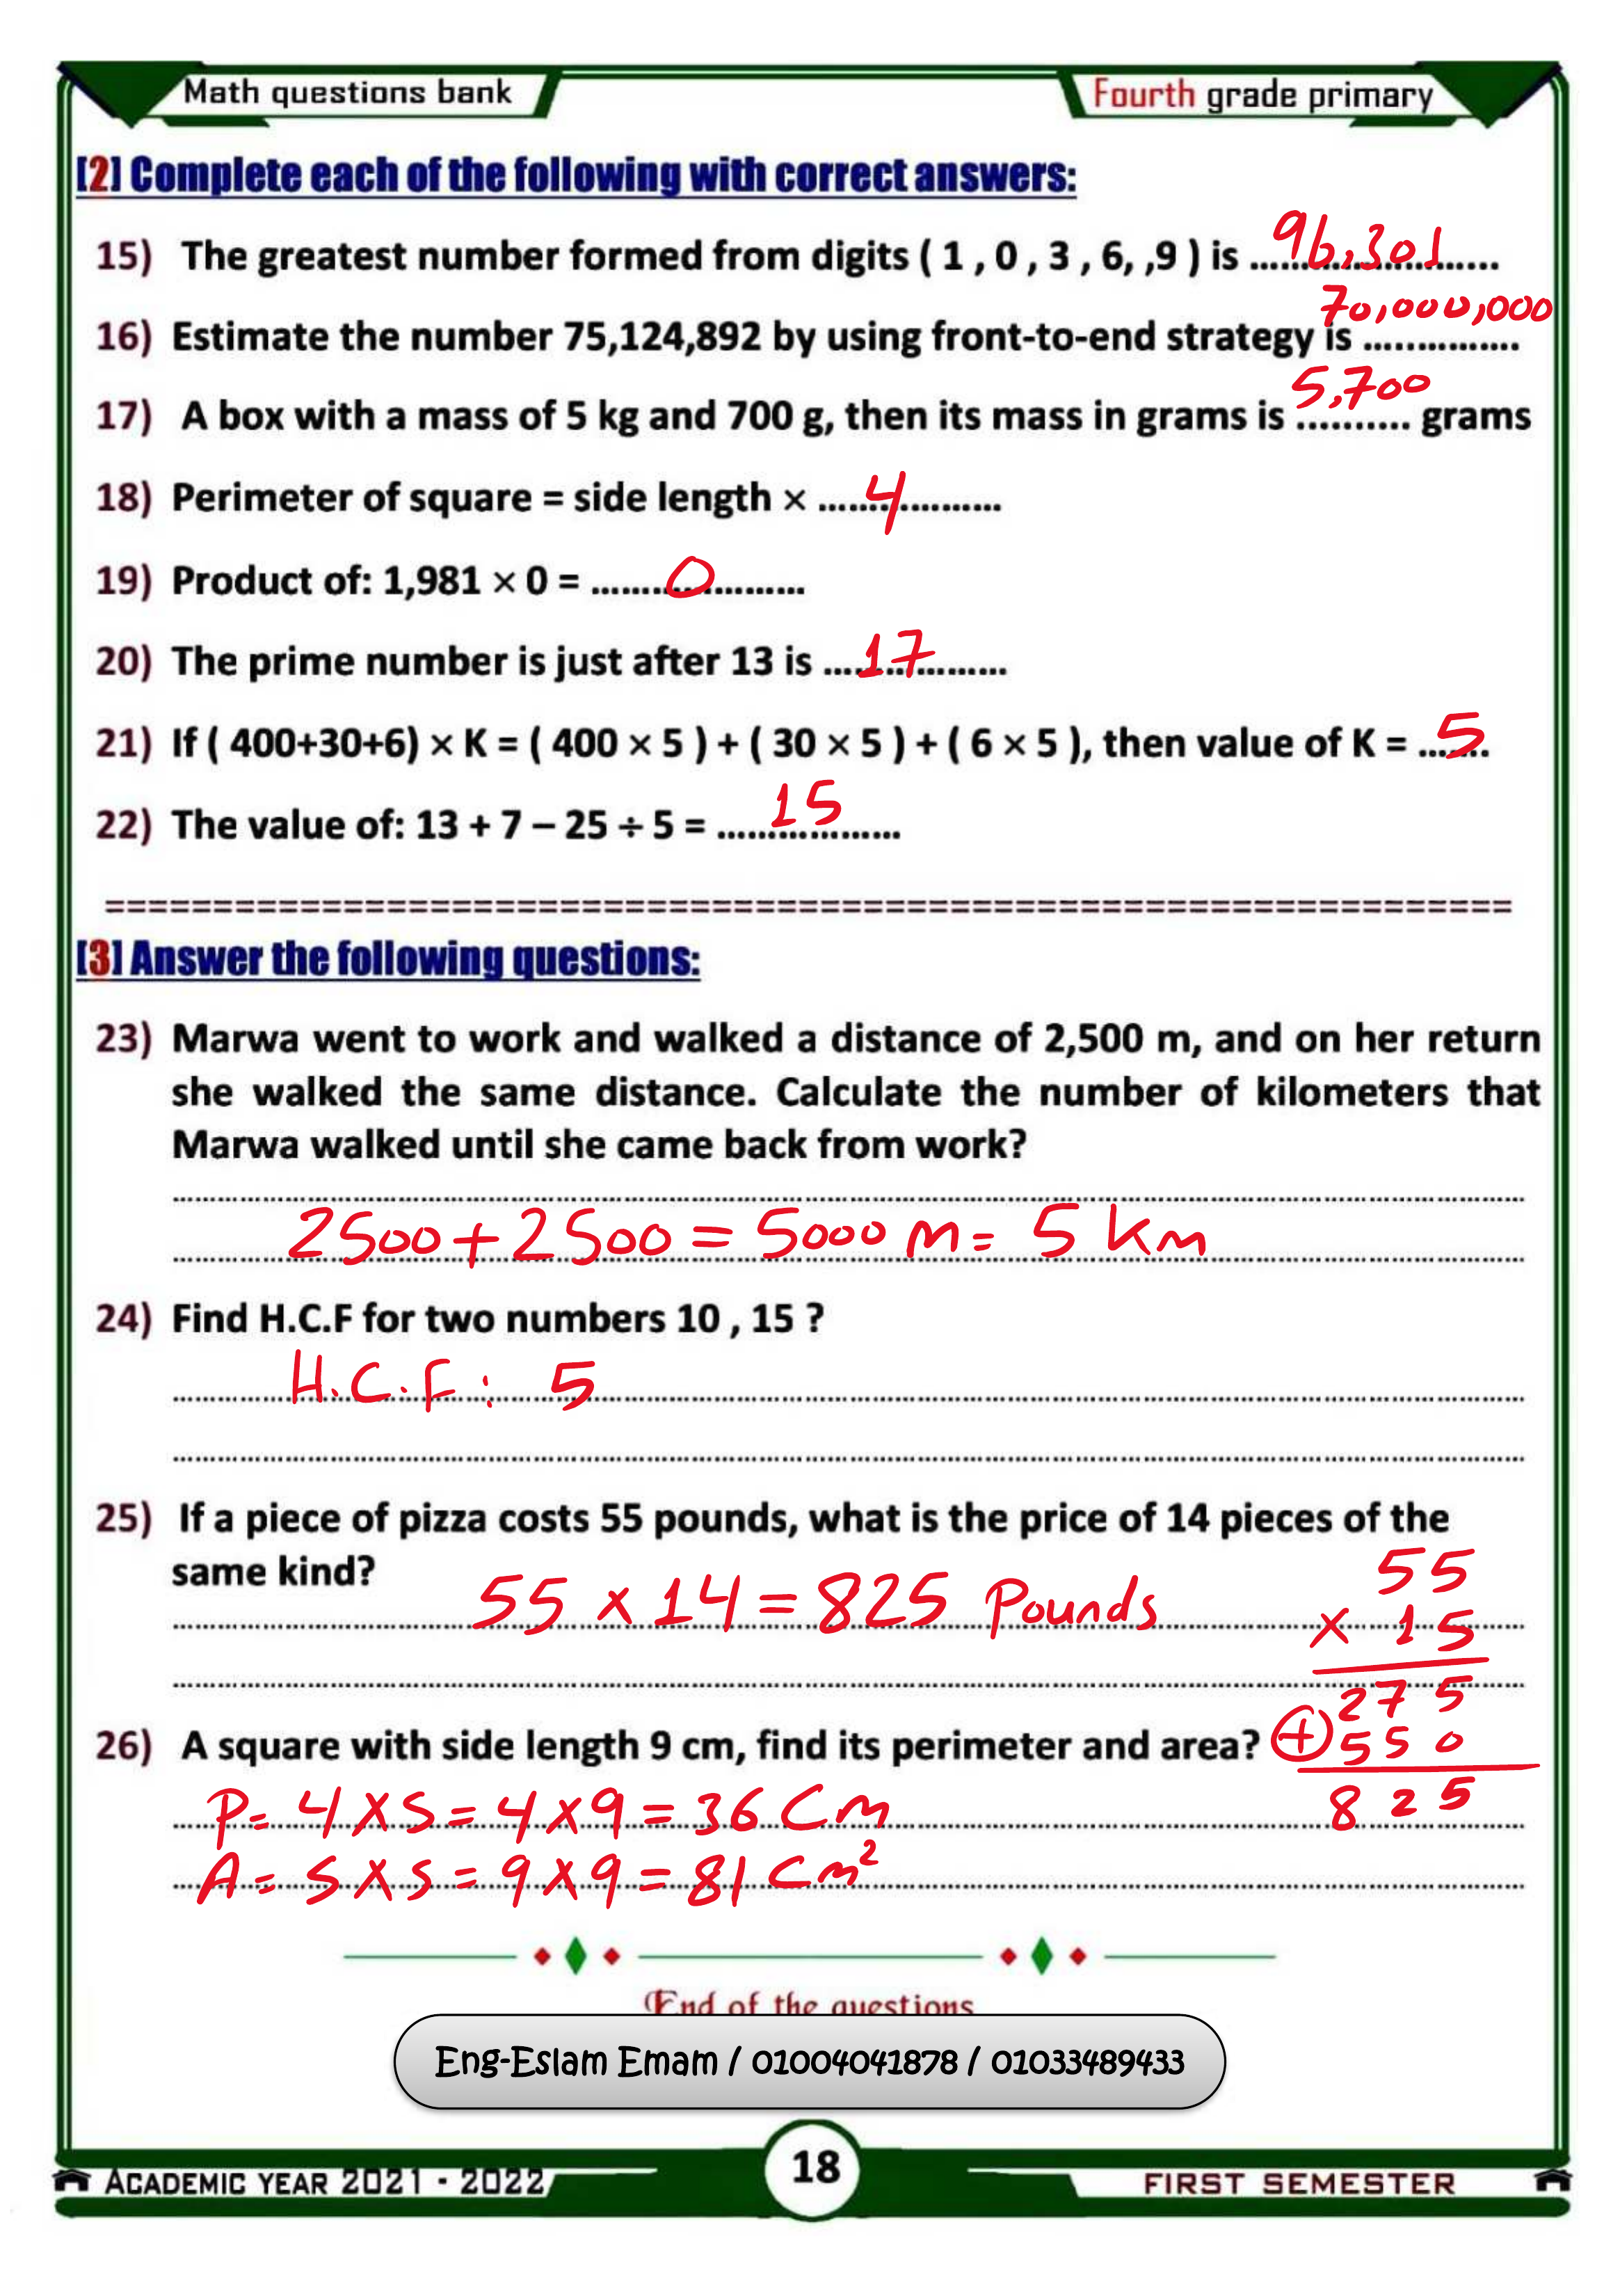 Math questions bank
Fourth grade primary
[2] Complete each of the following with correct answers:
15) The greatest number formed from digits ( 1 , 0 , 3 , 6, ,9 ) is ........................ 96,301
16) Estimate the number 75,124,892 by using front-to-end strategy is ............... 70,000,000
17) A box with a mass of 5 kg and 700 g, then its mass in grams is .......... grams 5,700
18) Perimeter of square = side length × .................. 4
19) Product of: 1,981 × 0 = ..................... 0
20) The prime number is just after 13 is .................. 17
21) If ( 400+30+6) × K = ( 400 × 5 ) + ( 30 × 5 ) + ( 6 × 5 ), then value of K = ....... 5
22) The value of: 13 + 7 – 25 ÷ 5 = .................. 15
=================================================================
[3] Answer the following questions:
23) Marwa went to work and walked a distance of 2,500 m, and on her return
she walked the same distance. Calculate the number of kilometers that
Marwa walked until she came back from work?
2500 + 2500 = 5000 m = 5 Km
24) Find H.C.F for two numbers 10 , 15 ?
H.C.F : 5
25) If a piece of pizza costs 55 pounds, what is the price of 14 pieces of the
same kind?
55 × 14 = 825 Pounds
55
× 15
275
+ 550
825
26) A square with side length 9 cm, find its perimeter and area?
P = 4 × S = 4 × 9 = 36 Cm
A = S × S = 9 × 9 = 81 Cm²
End of the questions
Eng-Eslam Emam / 01004041878 / 01033489433
ACADEMIC YEAR 2021 - 2022
18
FIRST SEMESTER